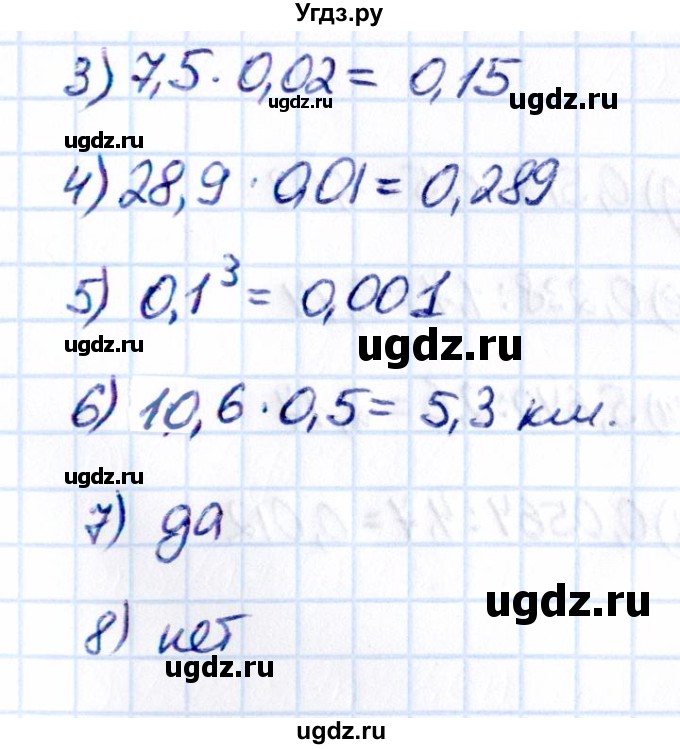 Угдз.ру
3) 7,5 · 0,02 = 0,15
ugdz.ru
ugdz.ru
ugdz.ru
4) 28,9 · 0,01 = 0,289
5) 0,1³ = 0,001
ugdz.ru
ugdz.ru
6) 10,6 · 0,5 = 5,3 км.
ugdz.ru
7) да
ugdz.ru
8) нет
ugdz.ru
ugdz.ru